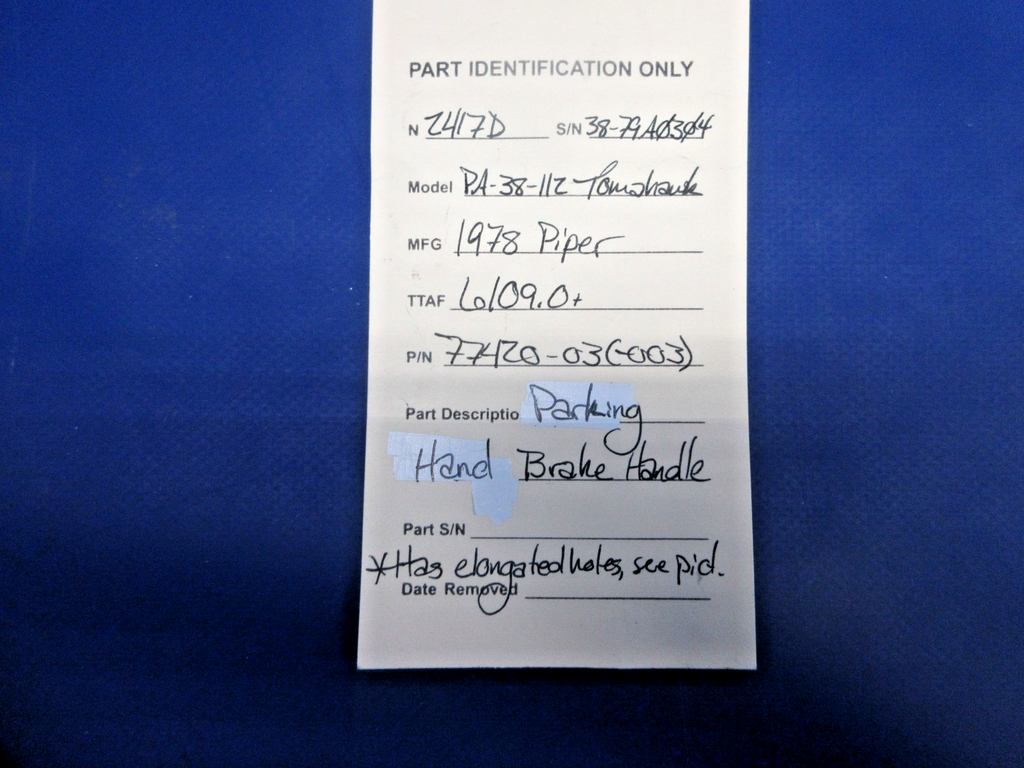 PART IDENTIFICATION ONLY
N 2417D S/N 38-79A0304
Model PA-38-112 Tomahawk
MFG 1978 Piper
TTAF 6109.0+
P/N 77420-03(-003)
Part Descriptio Parking
Hand Brake Handle
Part S/N
*Has elongated holes, see pict.
Date Removed